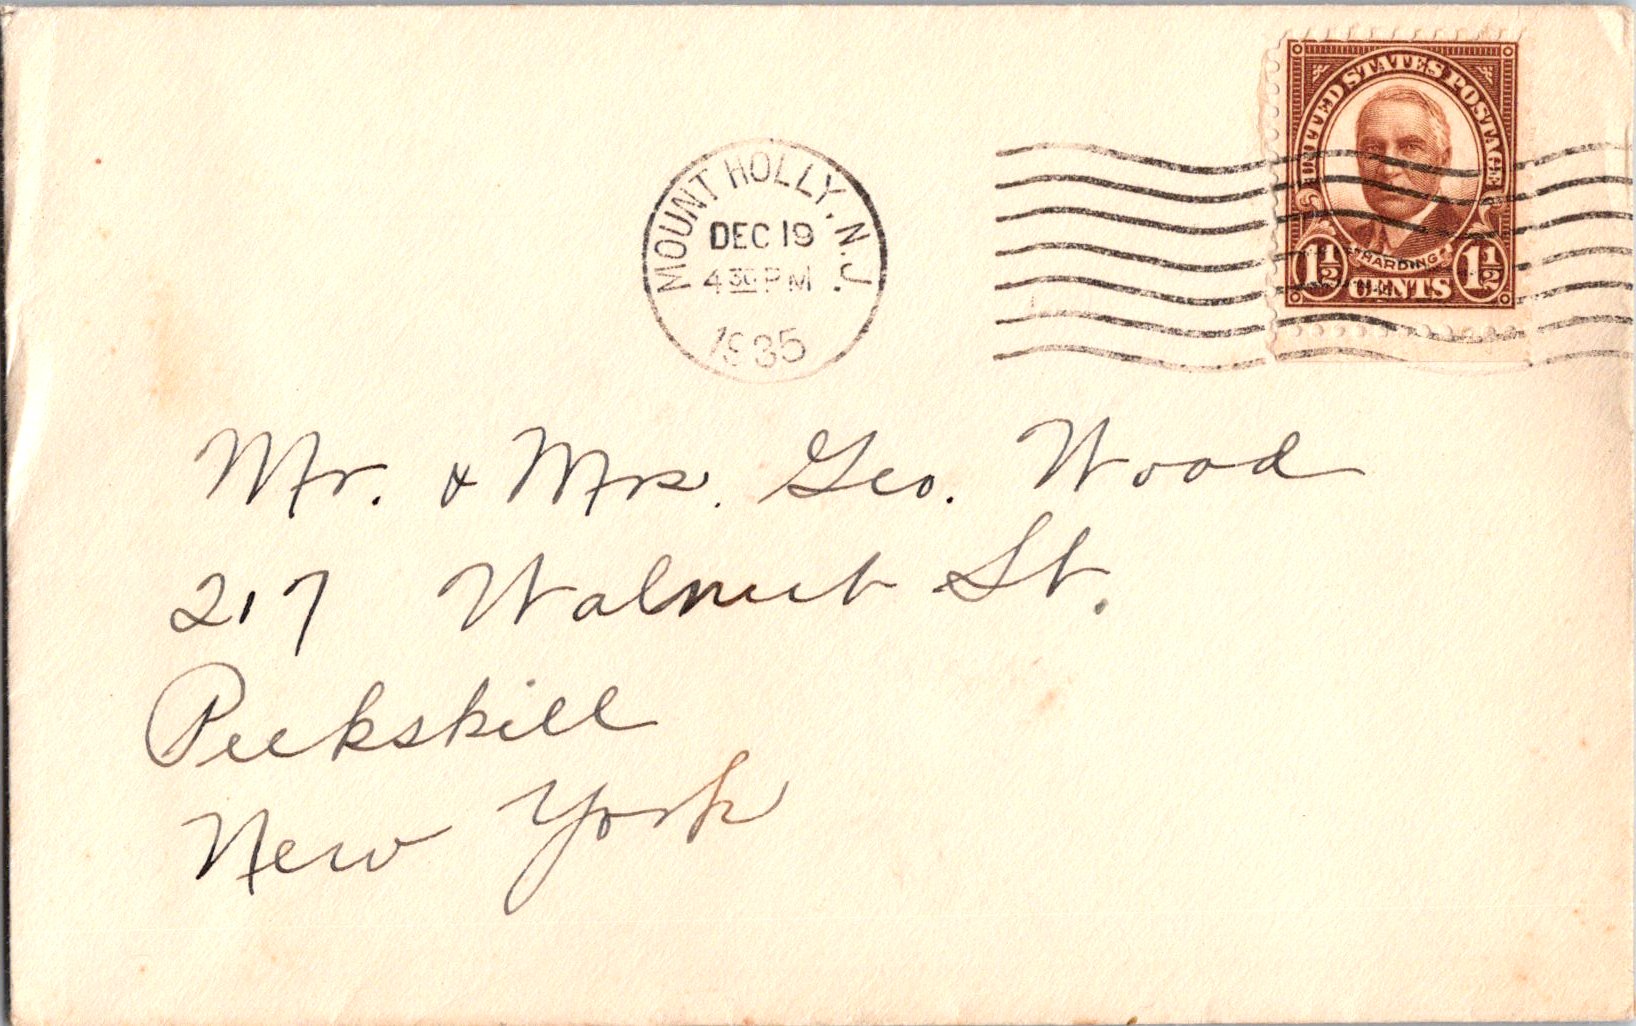 UNITED STATES POSTAGE
HARDING
1½ CENTS 1½
MOUNT HOLLY, N.J.
DEC 19
4 30 PM
1935
Mr. & Mrs. Geo. Wood
217 Walnut St.
Peekskill
New York